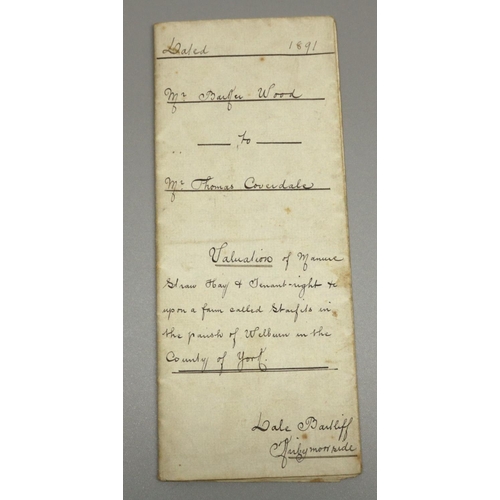 Dated 1891
Mr Barker Wood
to
Mr Thomas Coverdale
Valuation of Manure
Straw Hay & Tenant-right &c
upon a farm called Starfits in
the parish of Welburn in the
County of York.
Dale Bartliff
Kirbymoorside